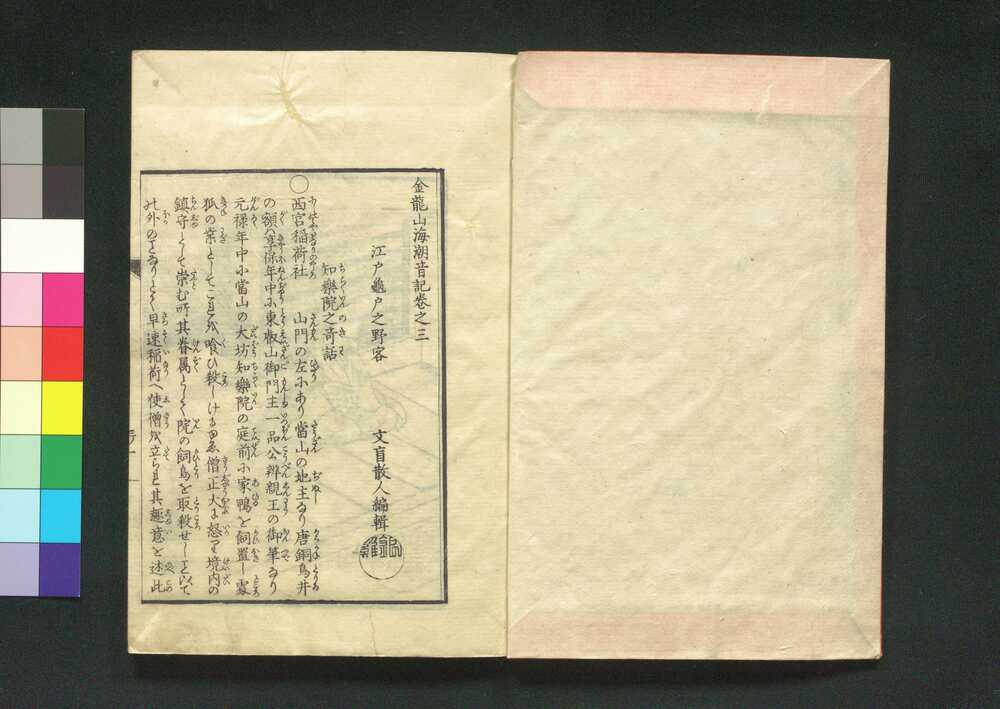 金龍山海潮音記巻之三
江戸亀戸之野客
文盲散人編輯
知樂院之奇話
○西宮稲荷社 山門の左にあり當山の地主なり唐銅鳥井
の額ハ享保年中に東叡山御門主一品公辨親王の御筆なり
元禄年中に當山の大坊知樂院の庭前に家鴨を飼置し處
狐の業としてこれを喰ひ殺しける由ゑ僧正大に怒り境内の
鎮守として崇む所其眷属として院の飼鳥を取殺せしこと以て
の外のことなりとて早速稲荷へ使僧を立られ其趣意を述此